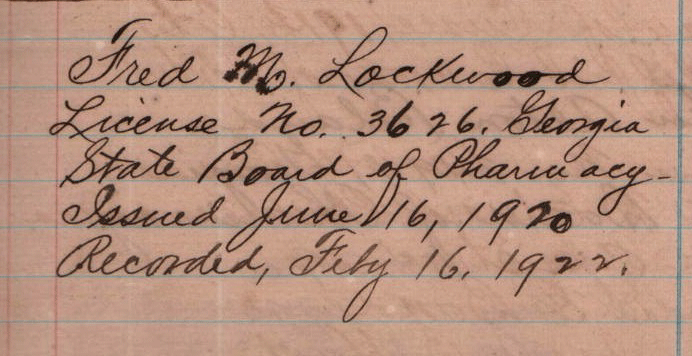 Fred M. Lockwood
License No. 3626. Georgia
State Board of Pharmacy-
Issued June 16, 1920
Recorded, Feby 16. 1922.